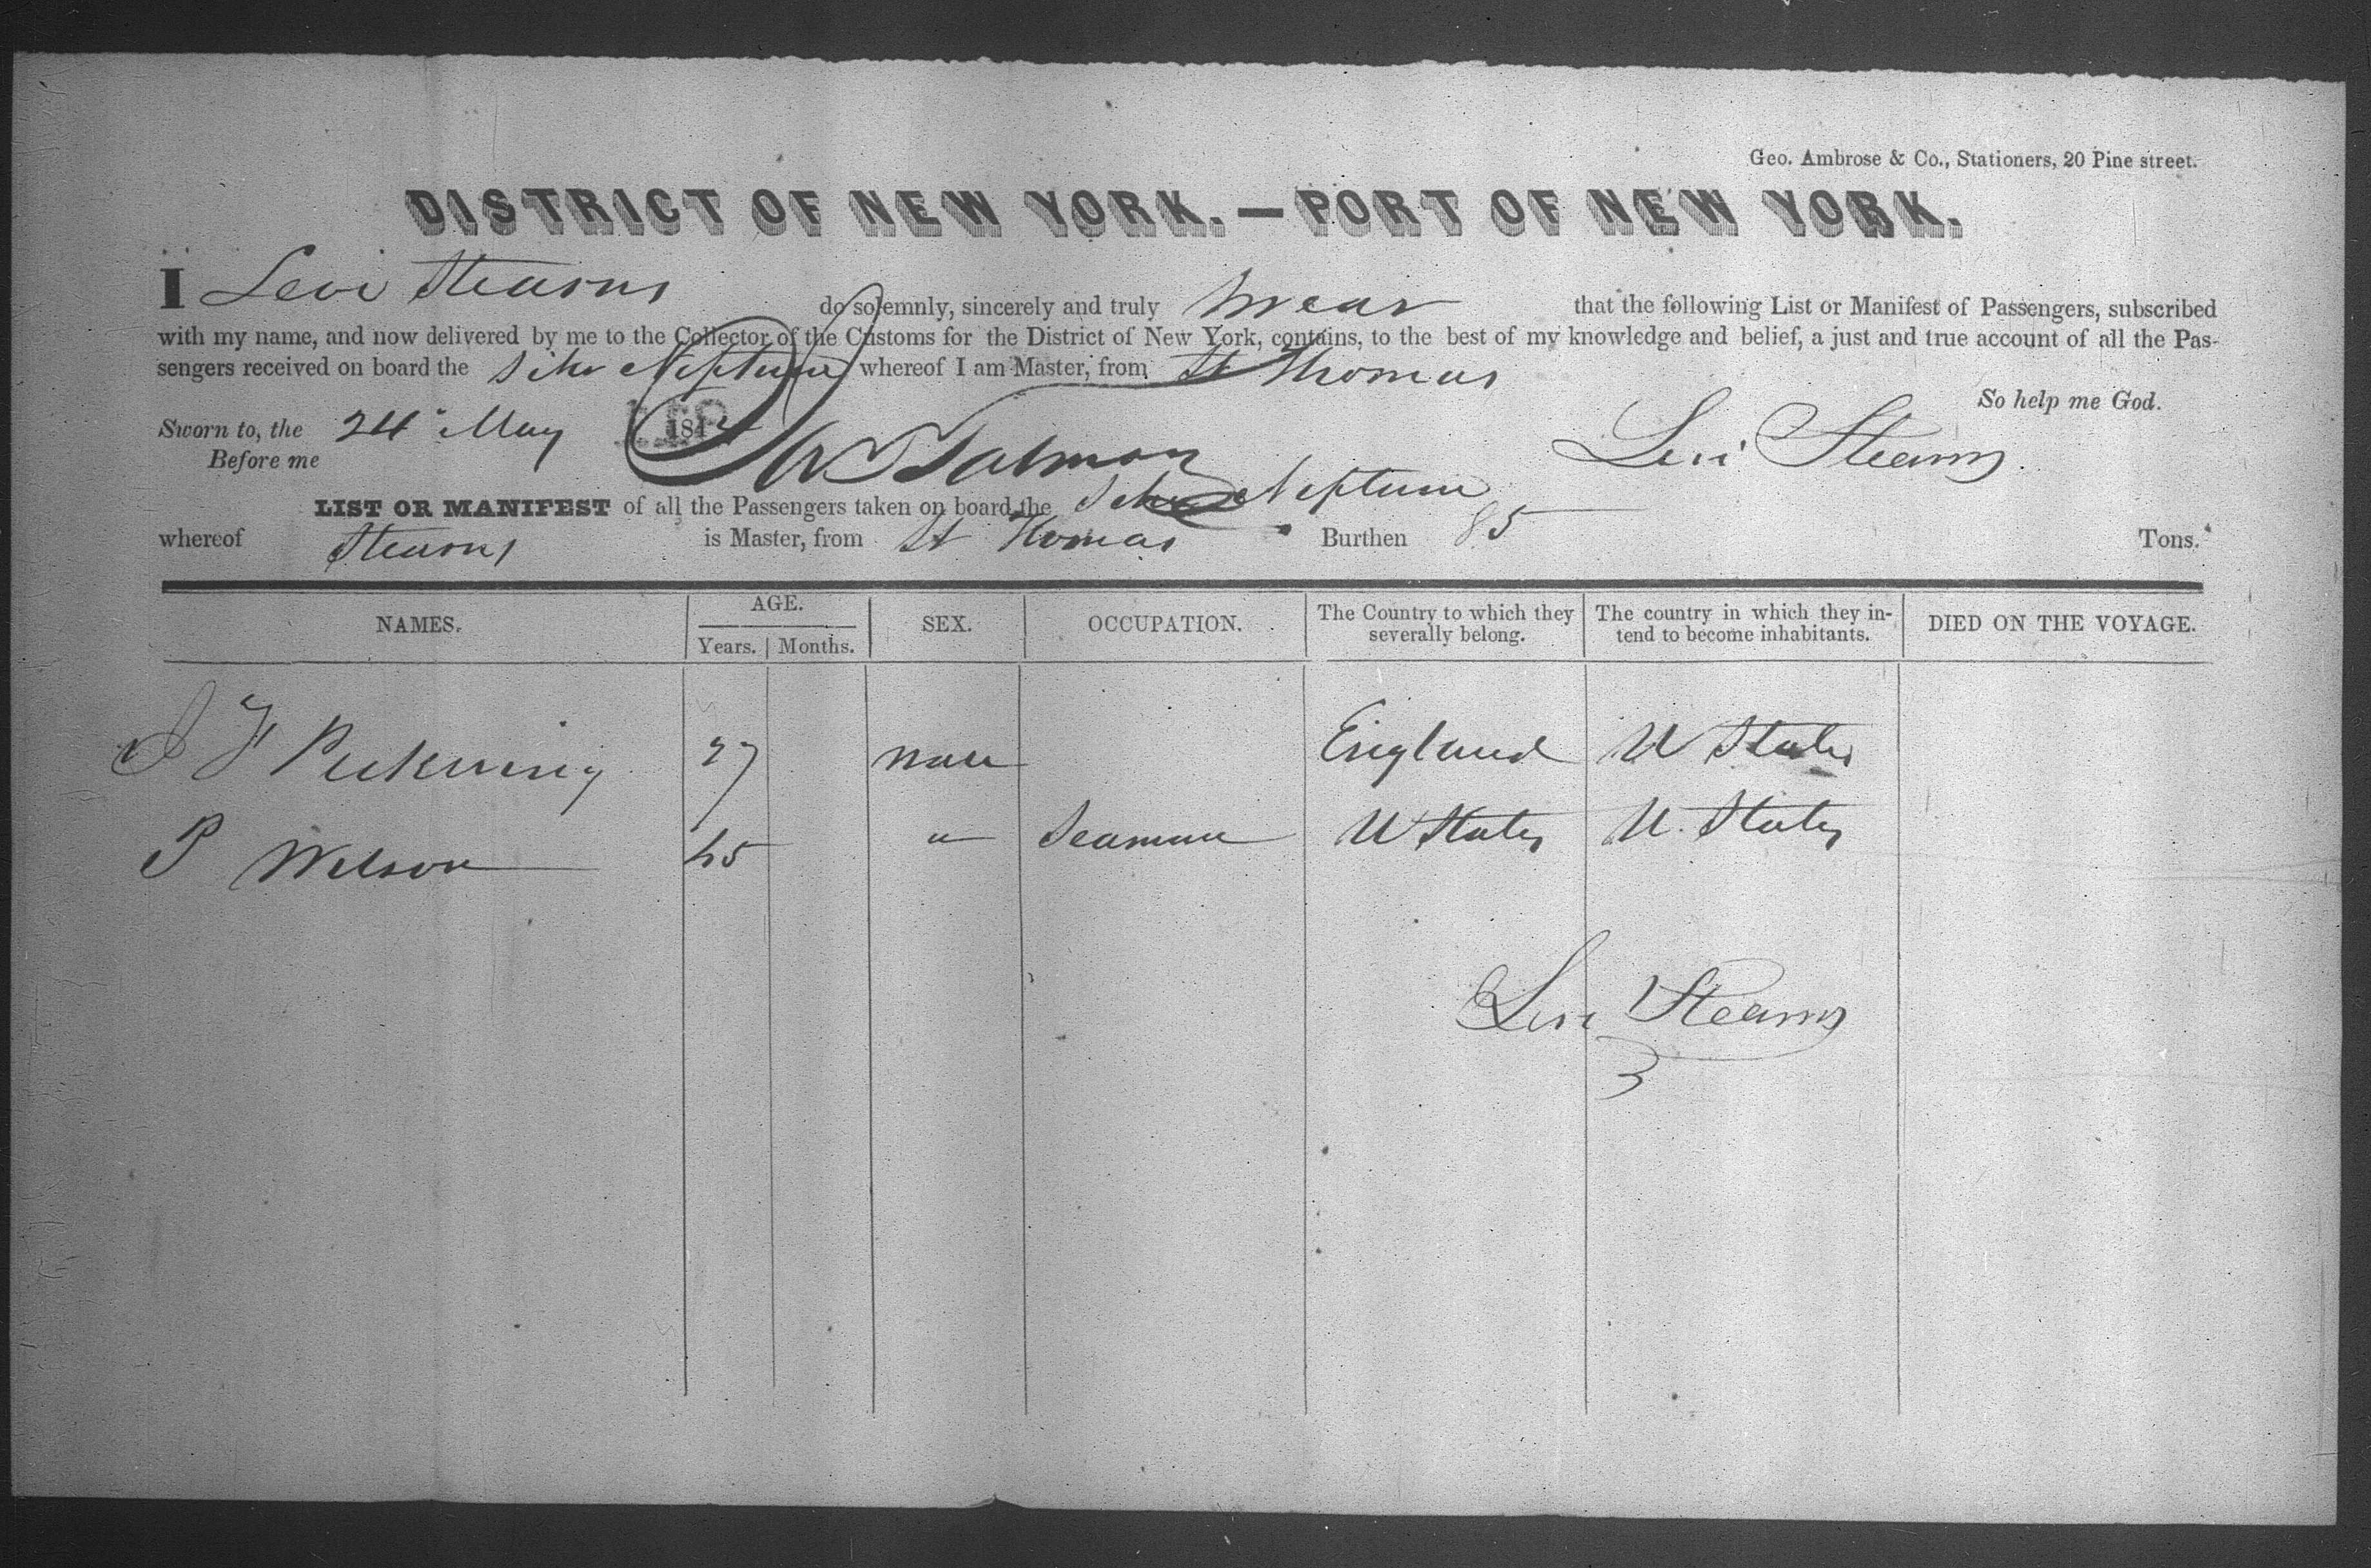 Geo. Ambrose & Co., Stationers, 20 Pine street.
DISTRICT OF NEW YORK.—PORT OF NEW YORK.
I Levi Stearns do solemnly, sincerely and truly swear that the following List or Manifest of Passengers, subscribed
with my name, and now delivered by me to the Collector of the Customs for the District of New York, contains, to the best of my knowledge and belief, a just and true account of all the Pas-
sengers received on board the Schr Neptune whereof I am Master, from St Thomas
So help me God.
Sworn to, the 24 May 184 Levi Stearns
Before me
LIST OR MANIFEST of all the Passengers taken on board the Schr Neptune
whereof Stearns is Master, from St Thomas Burthen 85 Tons.
NAMES. AGE. SEX. OCCUPATION. The Country to which they severally belong. The country in which they in-tend to become inhabitants. DIED ON THE VOYAGE.
Years. Months.
Pickering 27 male England U States
P Wilson 45 " Seaman U States U. States
Levi Stearns